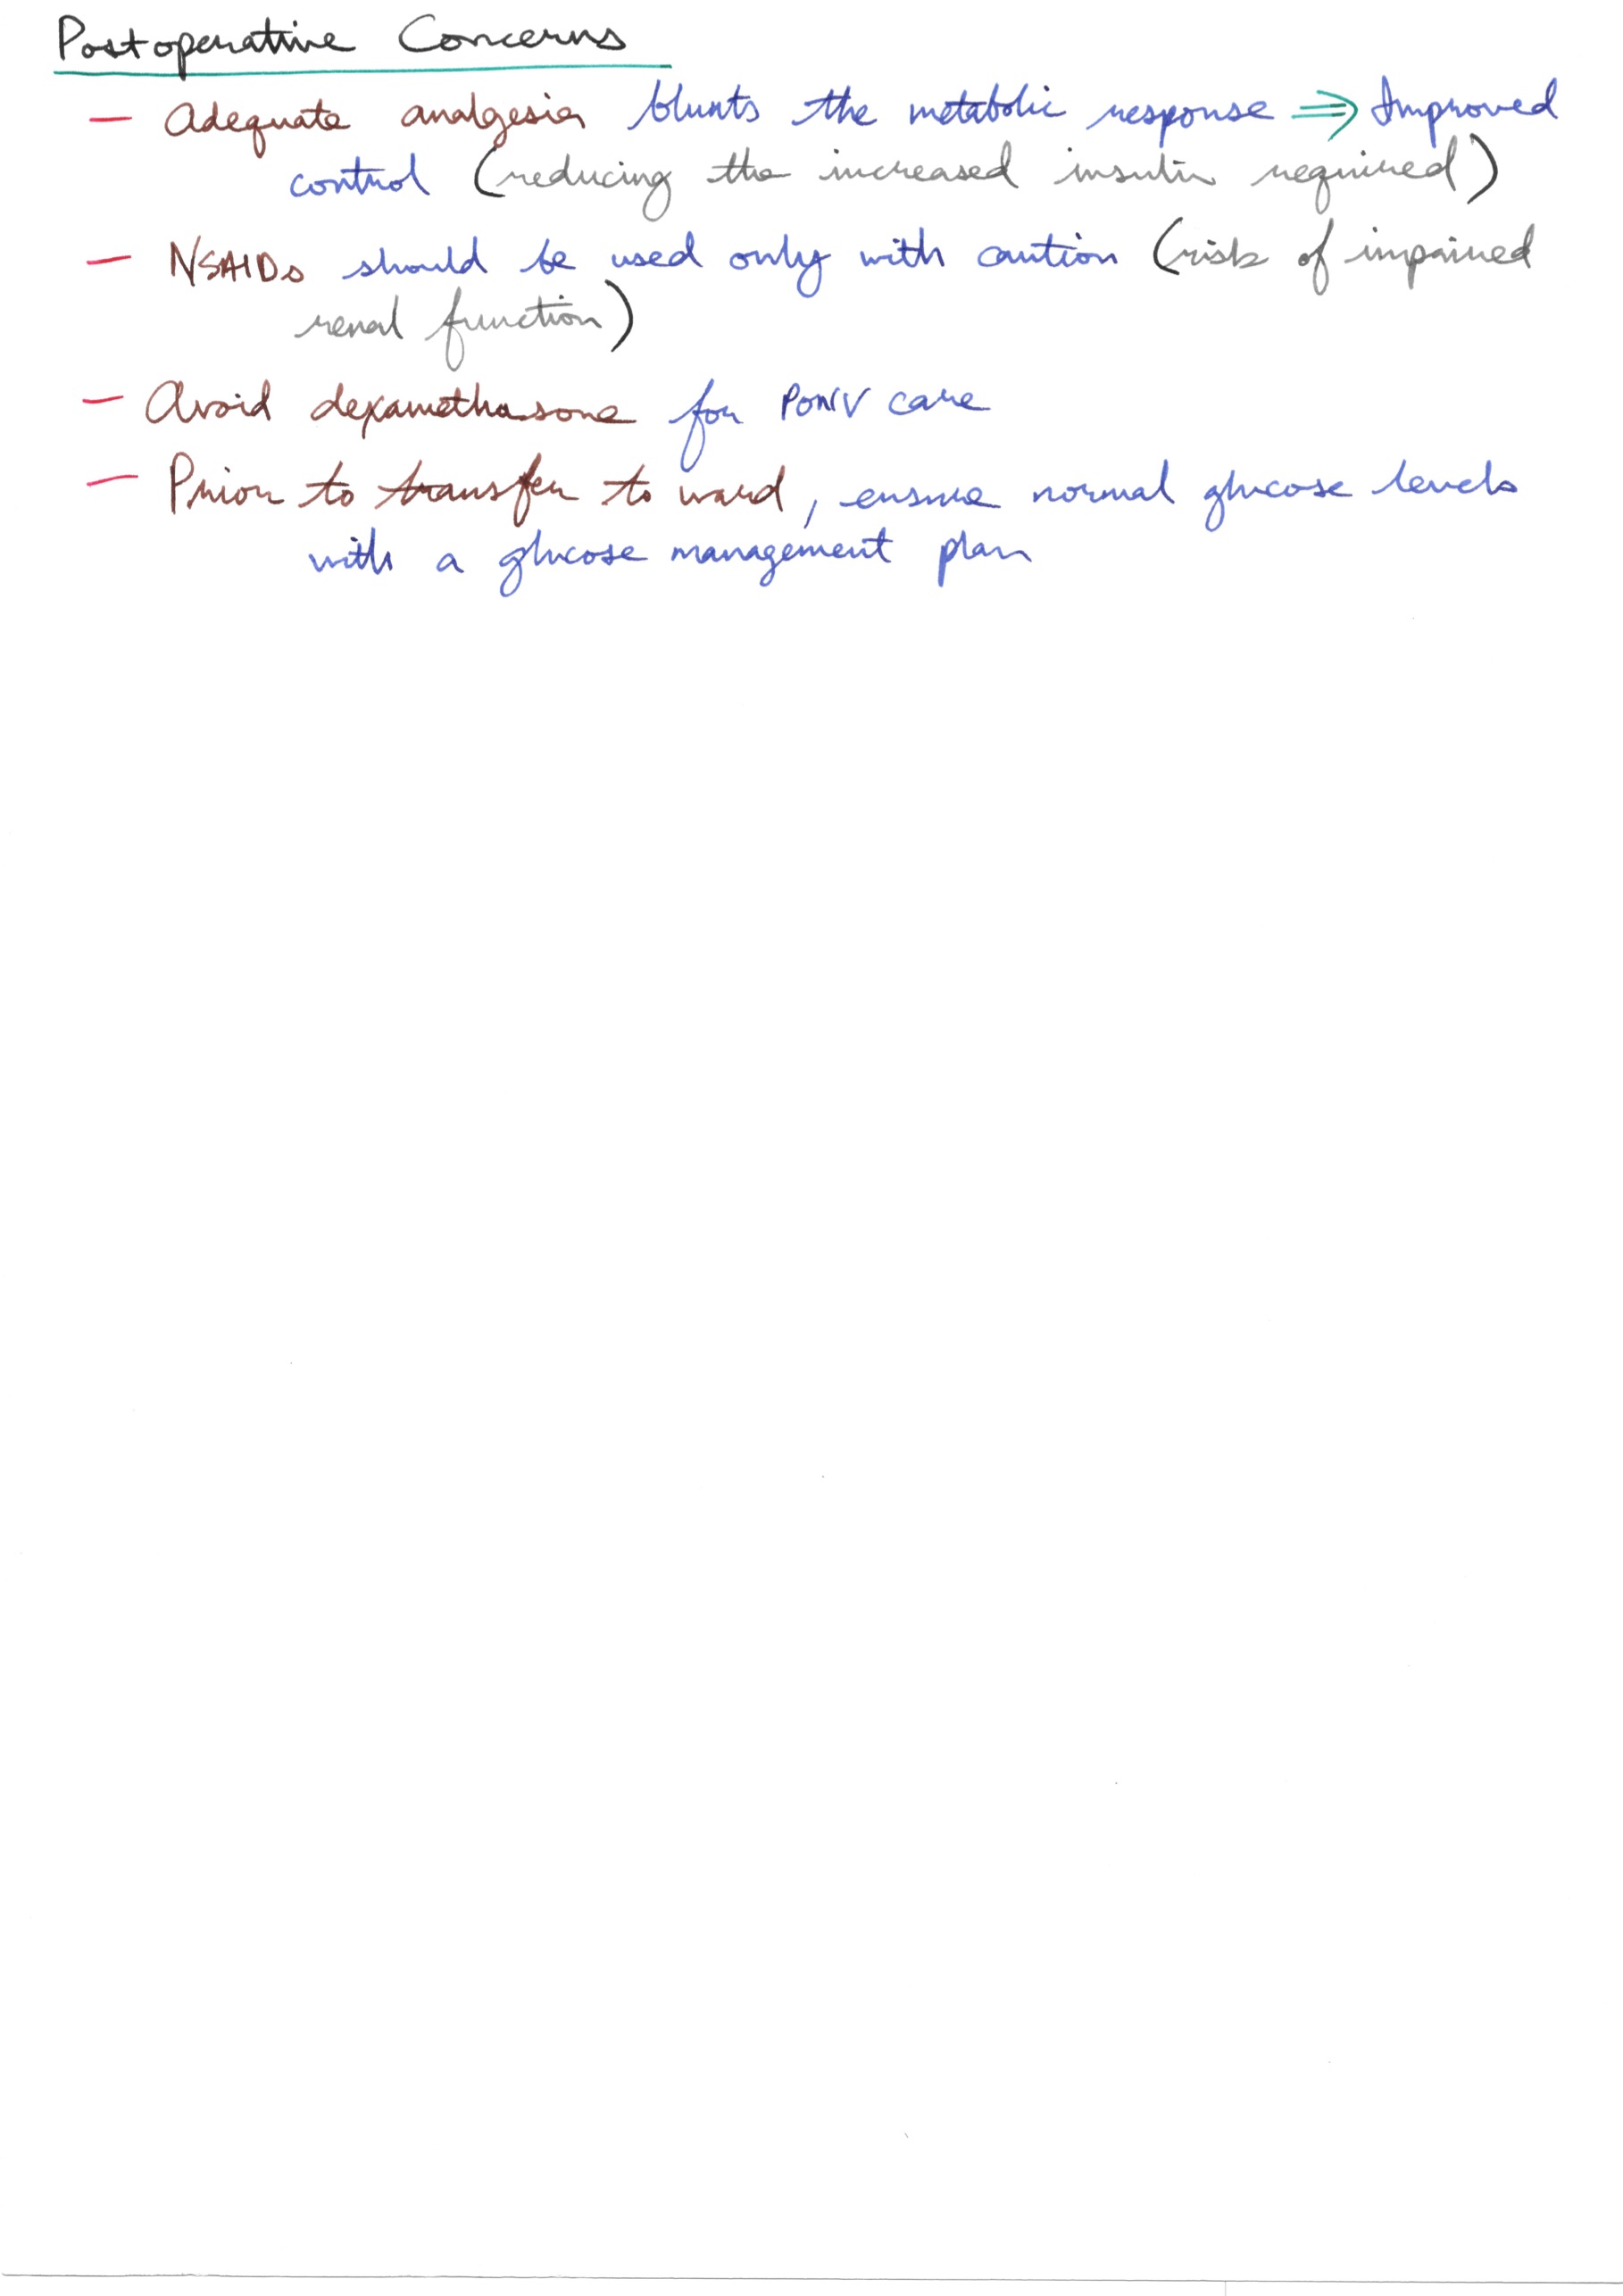 Postoperative Concerns
— Adequate analgesia blunts the metabolic response ⇒ Improved
control (reducing the increased insulin required)
— NSAIDs should be used only with caution (risk of impaired
renal function)
— Avoid dexamethasone for PONV care
— Prior to transfer to ward, ensure normal glucose levels
with a glucose management plan